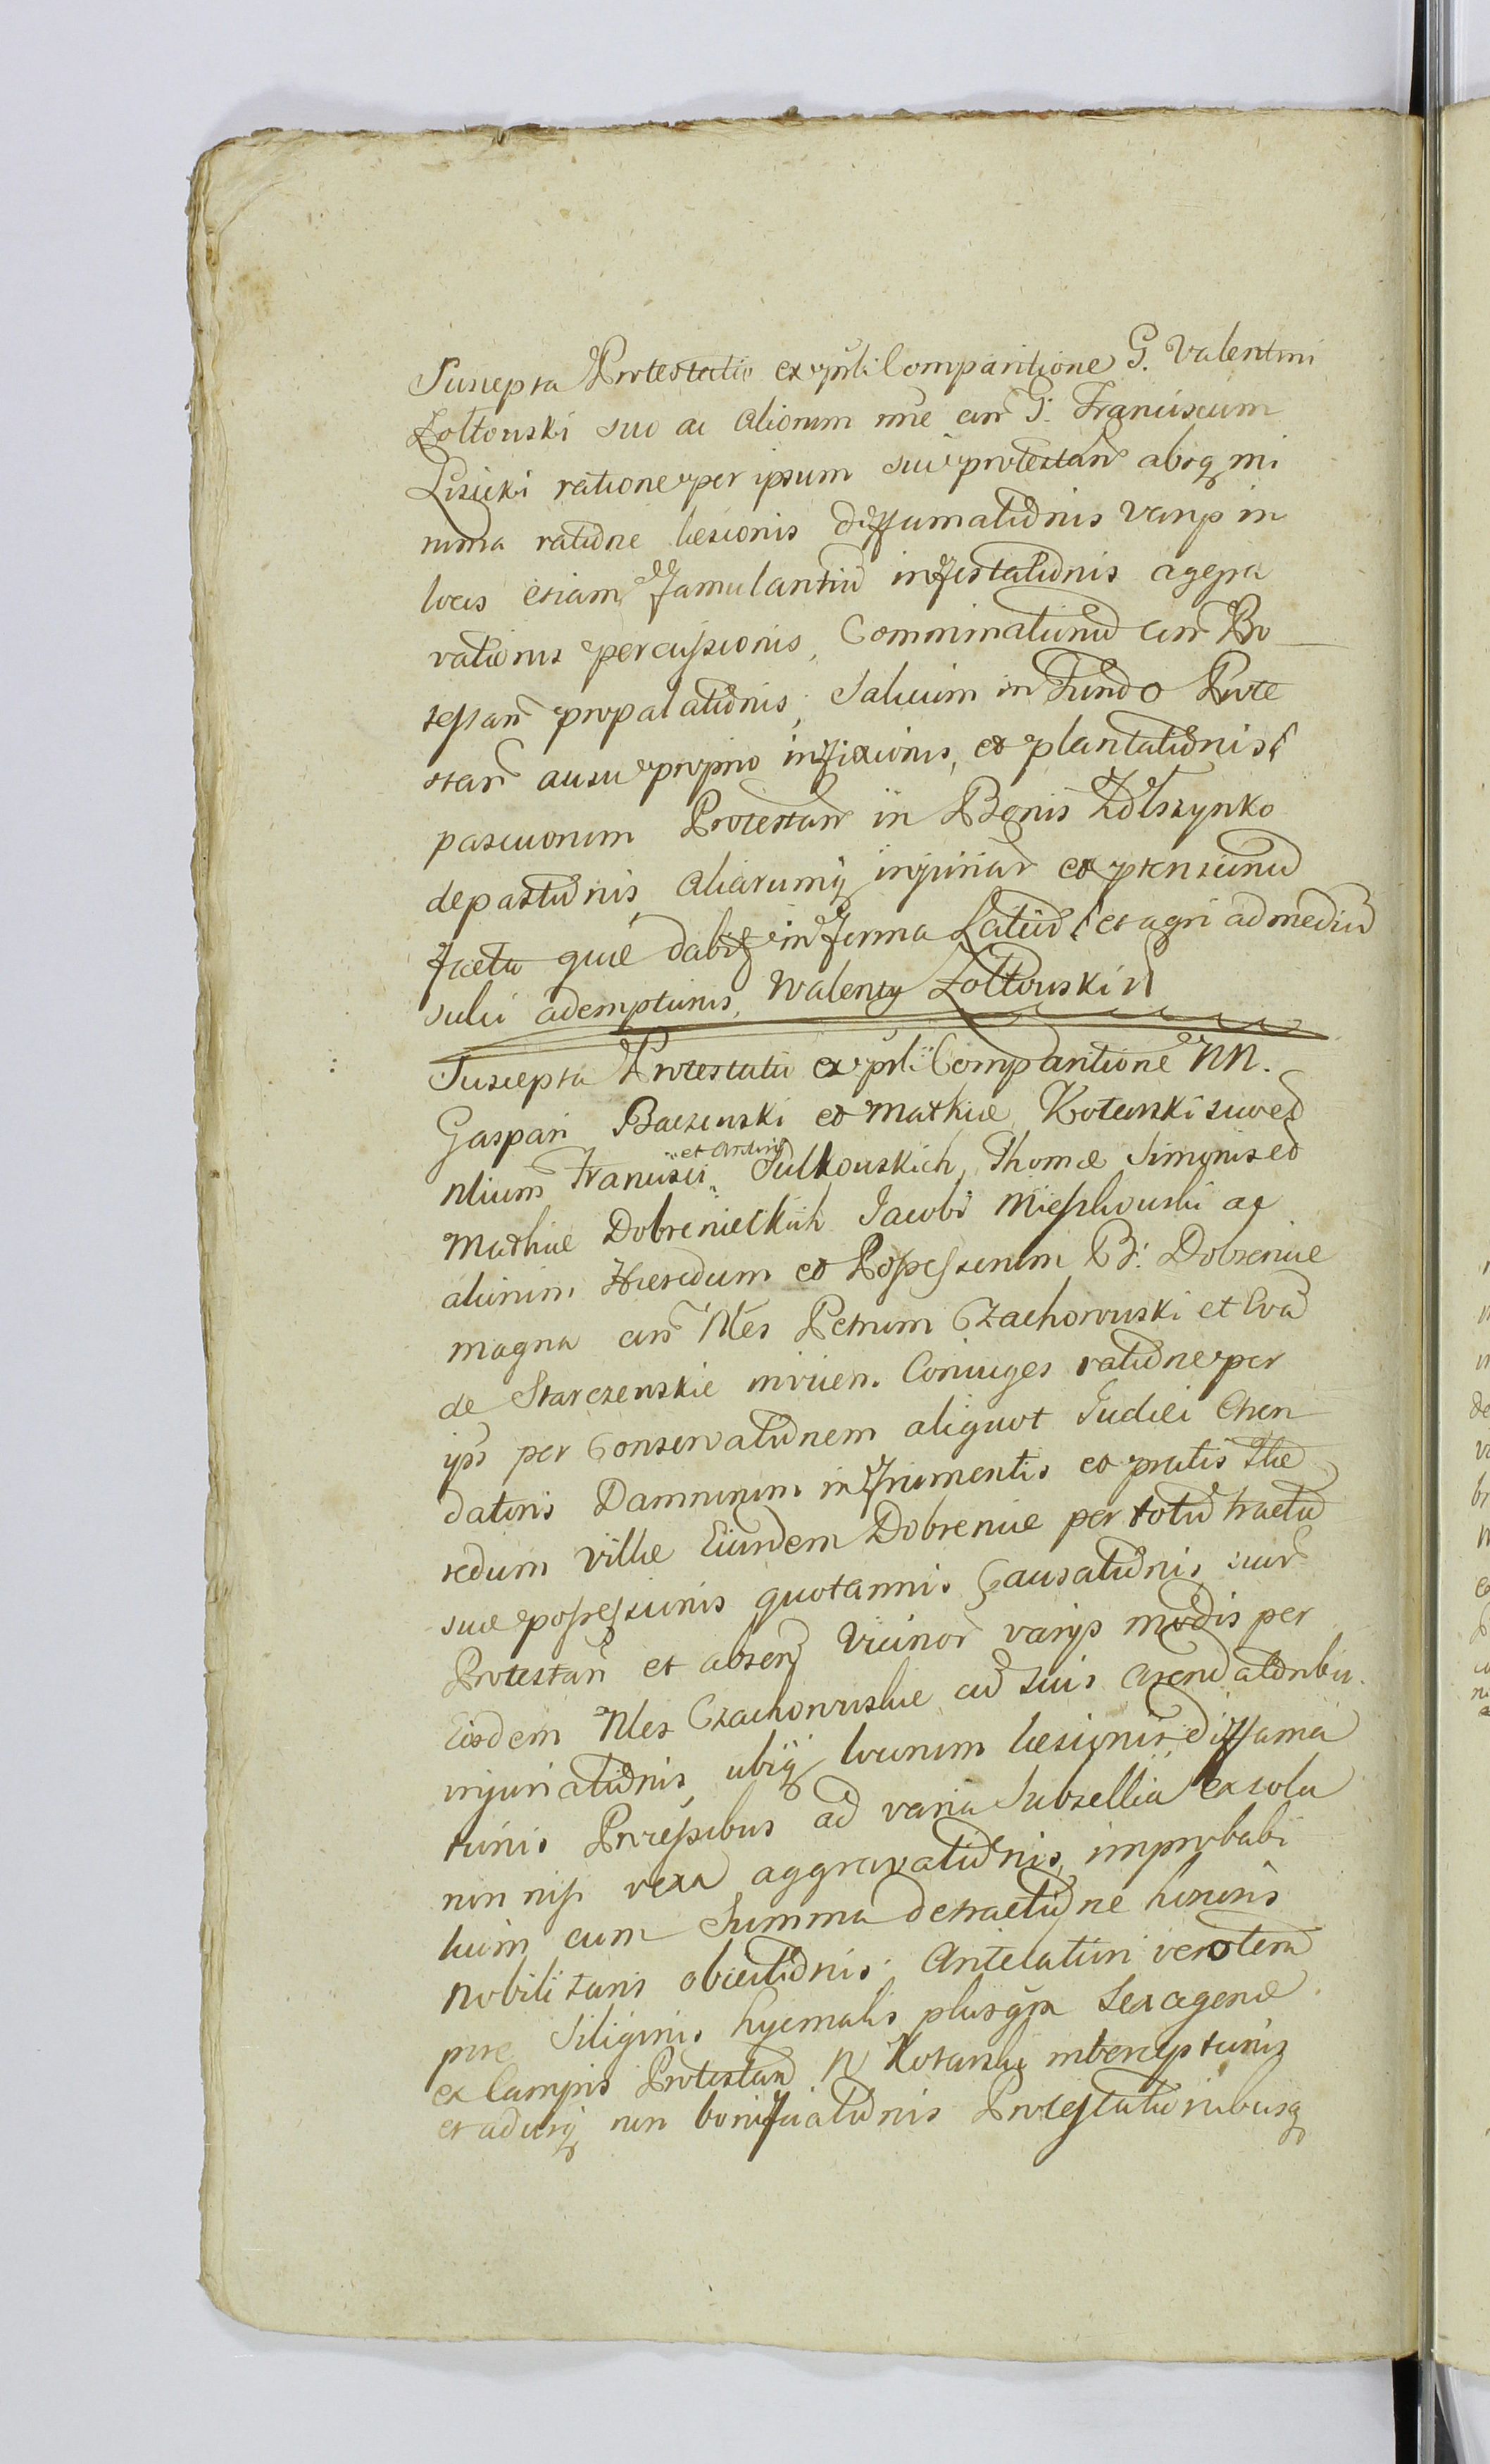 Suscepta Protestatio ex prśli Comparitione G. Valentini
Zołtowski suo ac aliorum nne cun G. Franciscum
Lisicki ratione per ipsum sui protestan absq mi
nima ratione lesionis diffamationis varys in
locis etiam famulantiu infestationis agegra
vationis percussionis, Comminationu cun Bo
ressan propalationis, Salicum in Fundo Prote
stan ausu proprio infixionis, et plantationis (
pascuorum Protestan in Bonis Zołszynko
depastionis aliarumq injuriar et ptensionu
facto quie dabit in forma Latiori (et agri ad mediu
sulci ademptionis, Walenty Zołtowski
Suscepta Protestatio ex prśli Comparitione NN.
Gaspari Baczenski et Mathiæ Kotarski suo et
Nlium Francisci Sulkouskich, Thomæ Simonis et
et Antonij
Mathiæ Dobrenieckich Jacobi Miesżkouski ac
aliorum Hæredum et Possessorum B: Dobreniæ
magna cun Nles Petrum Czachorouski et Eva
de Starczenskie invicen. Coniuges ratione per
ipsos per Conservationem aliquot Iudici Chen
datoris Damnorum in frumentis et pratis Hæ
redum villæ Eiusdem Dobreniæ per totu tractu
suæ possessionis quotannis Causationis, suor
Protestan et absen vicinor varys modis per
Eosdem Nles Czachorouskie cu suis Arendatoribu.
injuriationis, ubiq locorum læsionis diffama
tionis Processibus ad varia Subsellia ex sola
non nisi vexa aggravationis, improbabi
lium cum Summa detractione honoris
Nobilitaris obiectionis. Antelatiori vero tem
pore Siliginis hyemalis plusqm Sexagenæ
ex Campis Protestan N Kotarski interceptionis
et adusq non bonificationis Protestationibusq